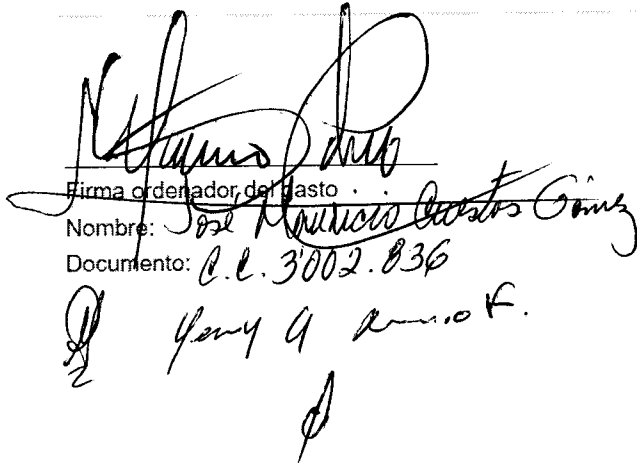 Firma ordenador del gasto
Nombre: José Mauricio Cuestas Gómez
Documento: C.C. 3'002.836
Yenny A